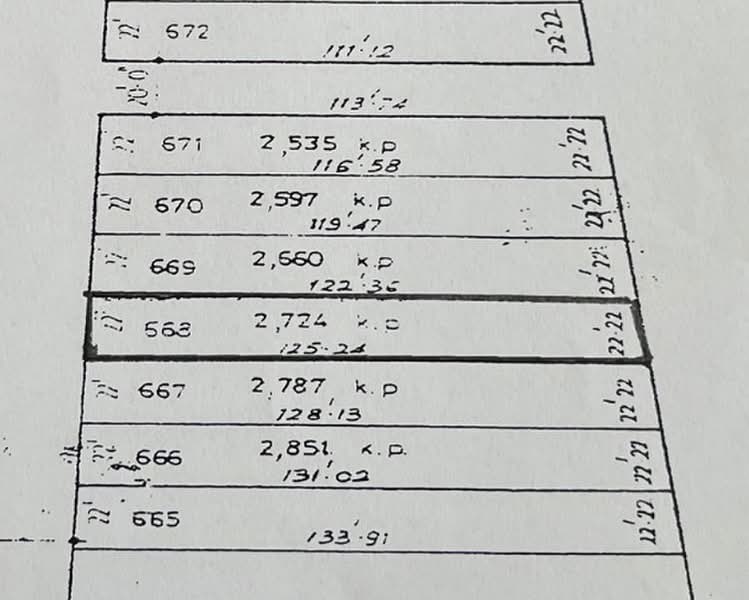 22' 672 22'22
111'12
20'0"
113'74
22' 671 2,535 k.p 22'22
116'58
22' 670 2,597 k.p 22'22
119'47
22' 669 2,660 k.p 22'22
122'36
22' 668 2,724 k.p 22'22
125·24
22' 667 2,787 k.p 22'22
128'13
22' 666 2,851 k.p. 22'22
131'02
22' 665 22'22
133'91